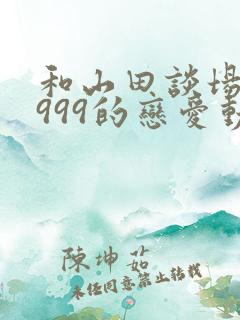 和山田談場
999的戀愛動
陳坤茹
未经同意禁止转载